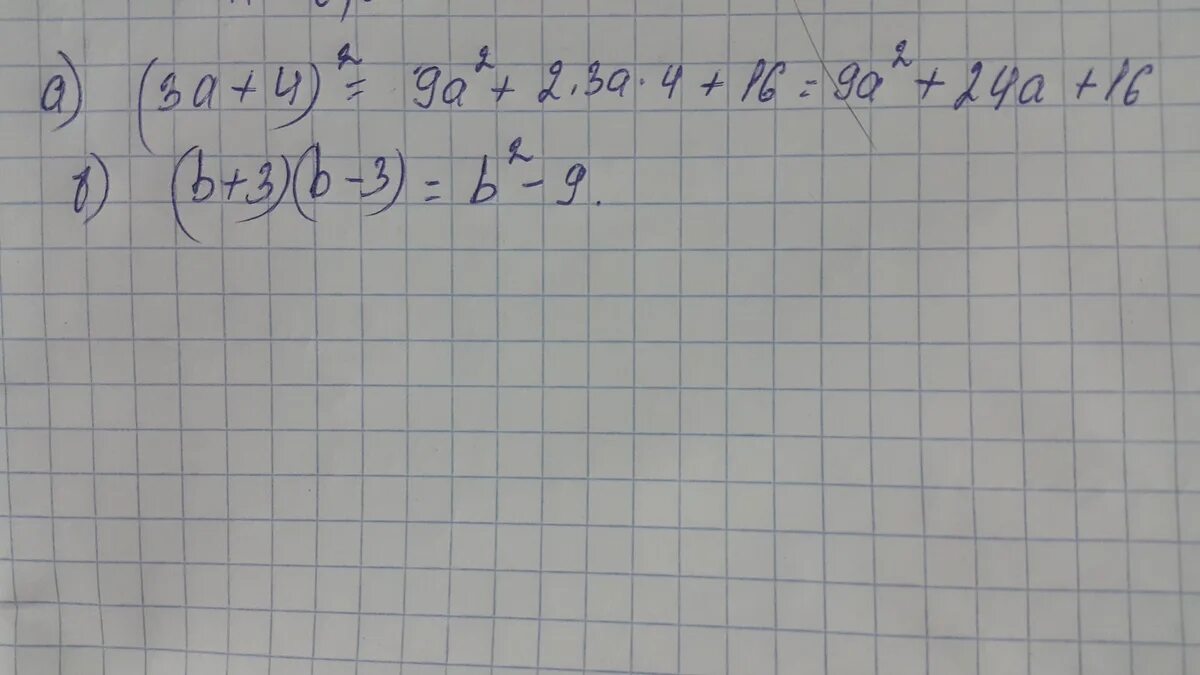 а) (3a+4)² = 9a² + 2·3a·4 + 16 = 9a² + 24a + 16
в) (b+3)(b-3) = b² - 9.